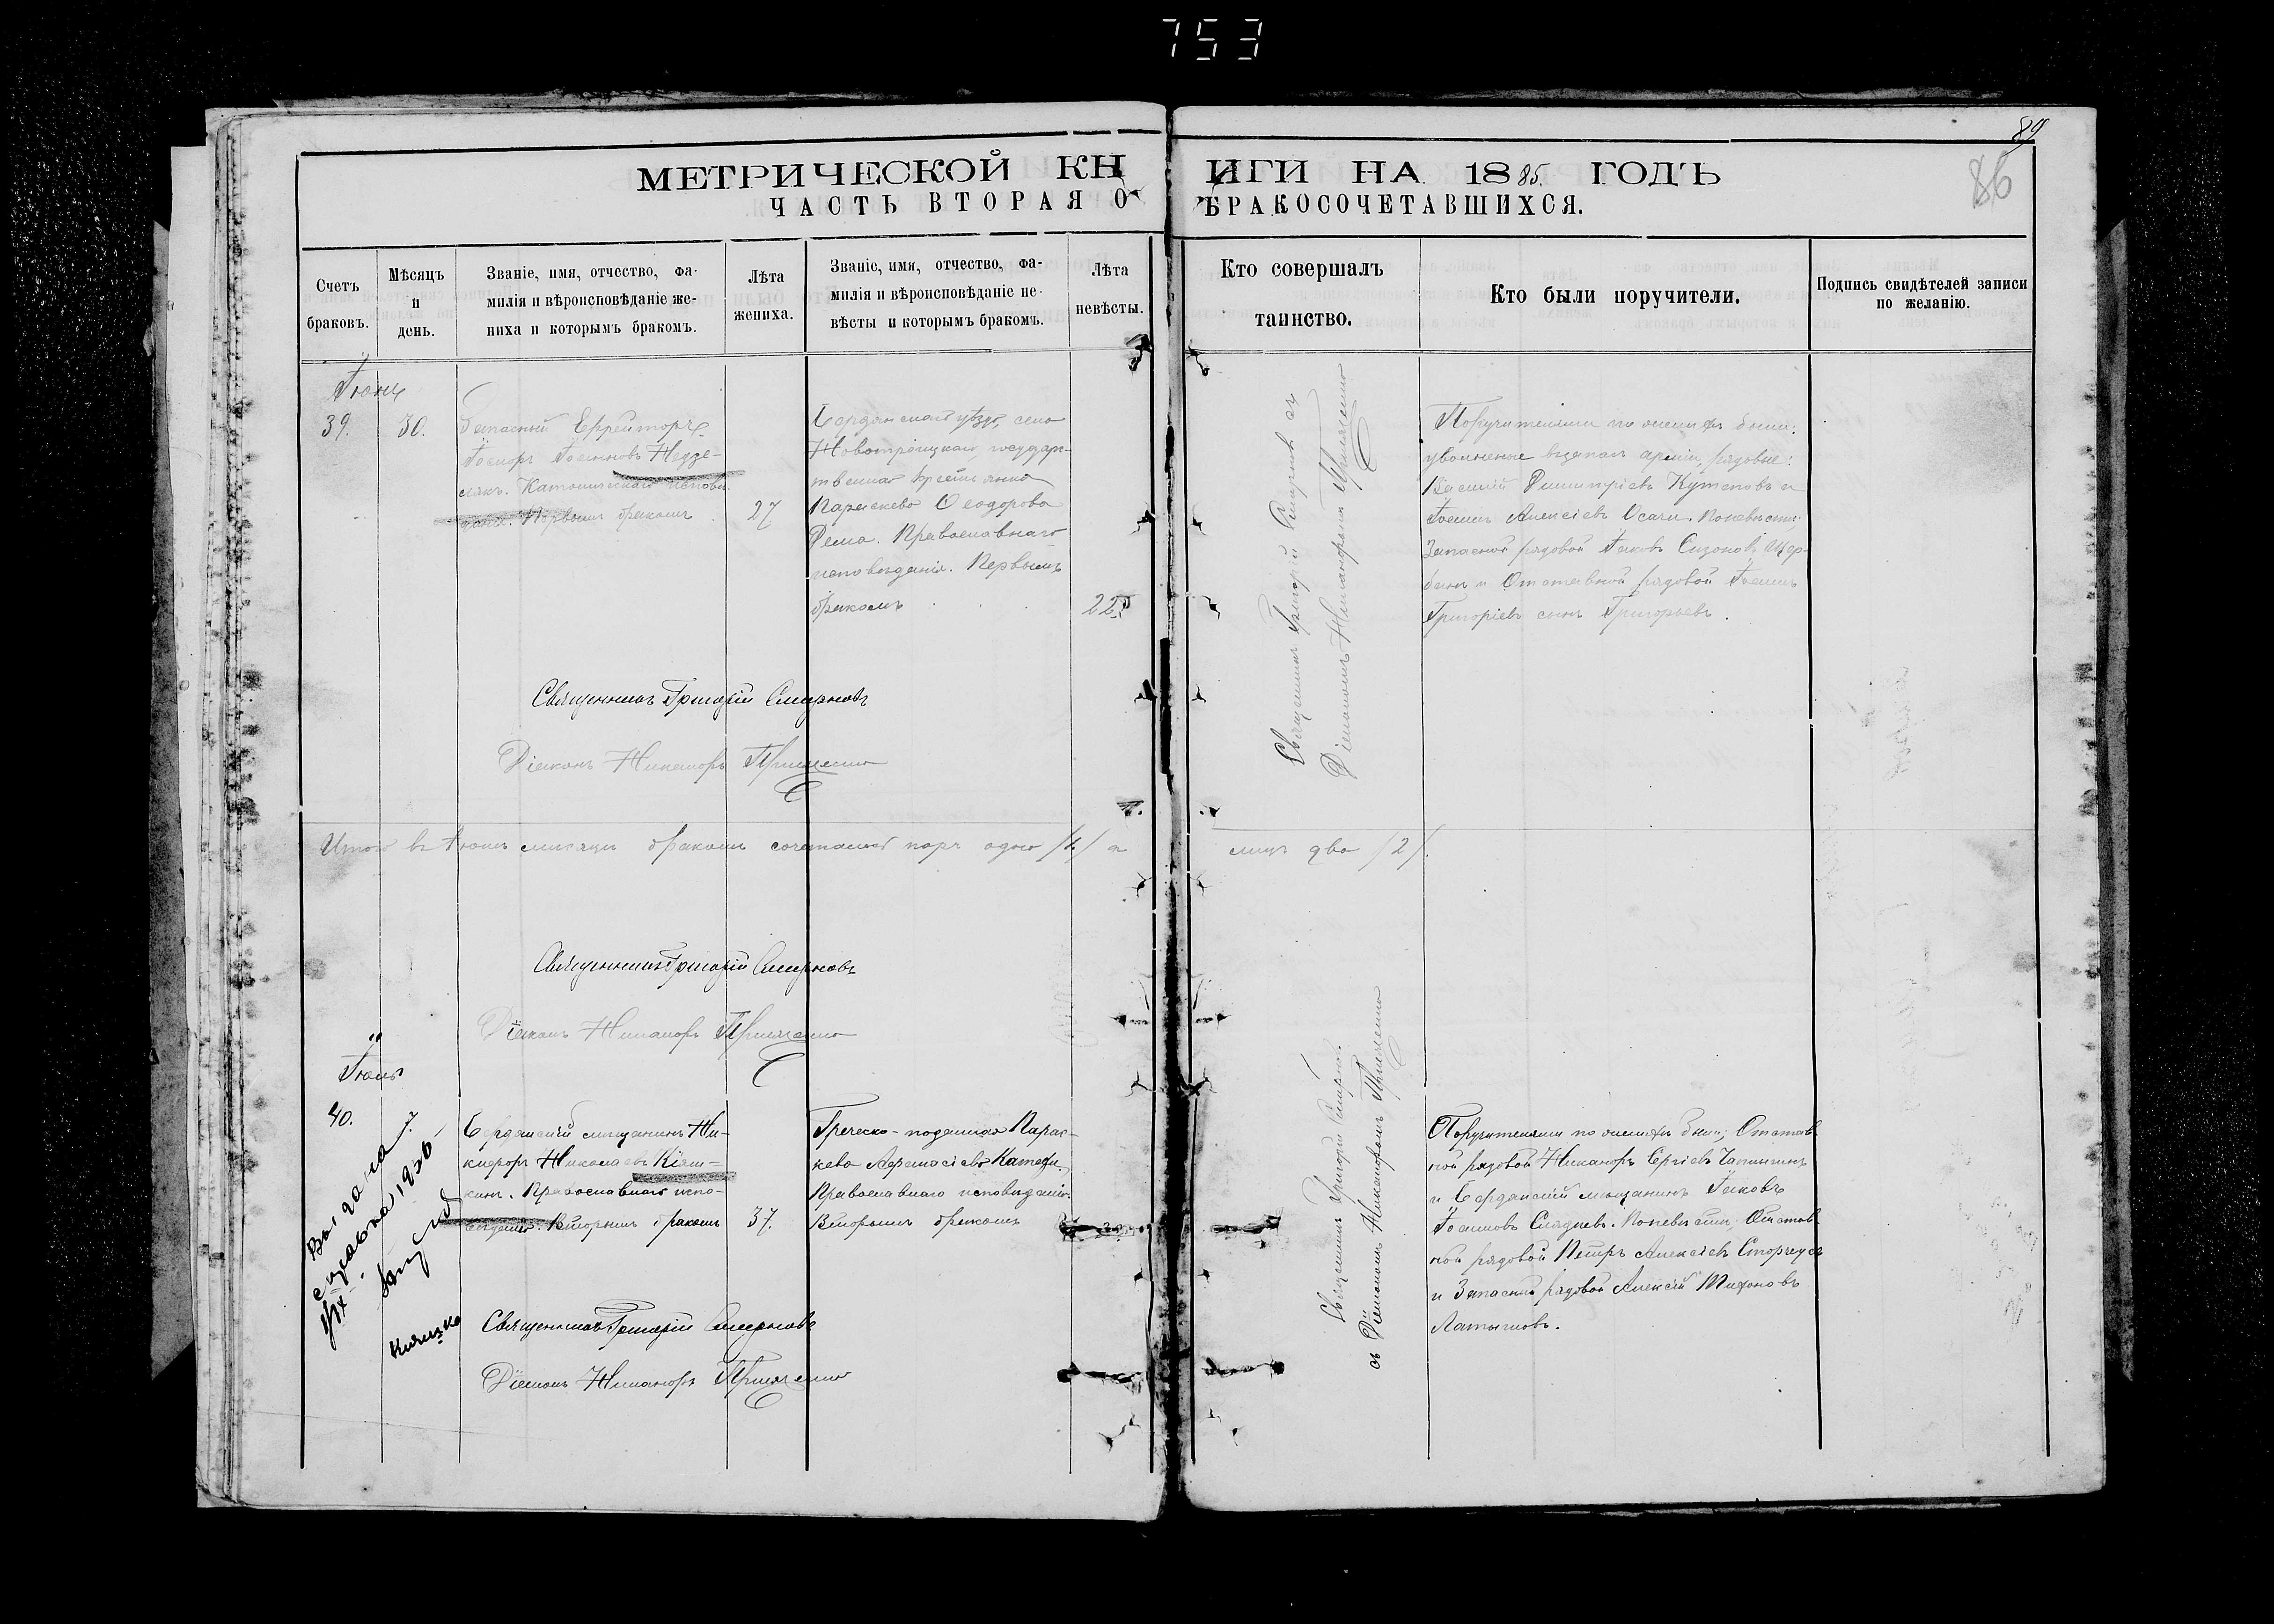 753
89
86
МЕТРИЧЕСКОЙ КНИГИ НА 1885. ГОДЪ
ЧАСТЬ ВТОРАЯ О БРАКОСОЧЕТАВШИХСЯ.
Счетъ браковъ.
Мѣсяцъ и день.
Званіе, имя, отчество, фа-
милія и вѣроисповѣданіе же-
ниха и которымъ бракомъ.
Лѣта жениха.
Званіе, имя, отчество, фа-
милія и вѣроисповѣданіе не-
вѣсты и которымъ бракомъ.
Лѣта невѣсты.
Кто совершалъ таинство.
Кто были поручители.
Подпись свидѣтелей записи
по желанію.
Іюнь
39.
30.
Запасный Ефрейторъ
Іосифъ
Католическаго исповѣ-
Первымъ бракомъ
27
уѣзда, села
Новотроицкаго, государ-
Параскева Ѳеодорова
Православнаго
исповѣданія. Первымъ
бракомъ
22
Священникъ Григорій Смирновъ съ
Діакономъ Никаноромъ
Поручителями по женихѣ были:
уволенные въ запасъ арміи, рядовые:
Василій Димитріевъ Кутеповъ и
Іоаннъ Алексіевъ Осачи. По невѣстѣ:
Запасной рядовой Іаковъ Сизоновъ Щер-
бакъ и Отставной рядовой Іоаннъ
Григоріевъ сынъ Григорьевъ.
Священникъ Григорій Смирновъ
Діаконъ Никаноръ
Итого въ Іюнѣ мѣсяцѣ бракомъ сочеталось паръ одна /1/ и
лицъ два /2/.
Священникъ Григорій Смирновъ
Діаконъ Никаноръ
Іюль
40.
7.
Выдана
справка 1926
Бердянскій мѣщанинъ Ни-
кифоръ Николаевъ Кіяш-
кинъ. Православнаго испо-
вѣданія. Вторымъ бракомъ
37.
Греческо-поданная Парас-
кева Аѳанасіева
Православнаго исповѣданія.
Вторымъ бракомъ
Священникъ Григорій Смирновъ
съ Діакономъ Никаноромъ
Поручителями по женихѣ были; Отстав-
ной рядовой Никаноръ Сергіевъ
и Бердянскій мѣщанинъ Іаковъ
Іоанновъ По невѣстѣ; Отстав-
ной рядовой Петръ Алексіевъ
и Запасный рядовой Алексій
Латышовъ.
Священникъ Григорій Смирновъ
Діаконъ Никаноръ